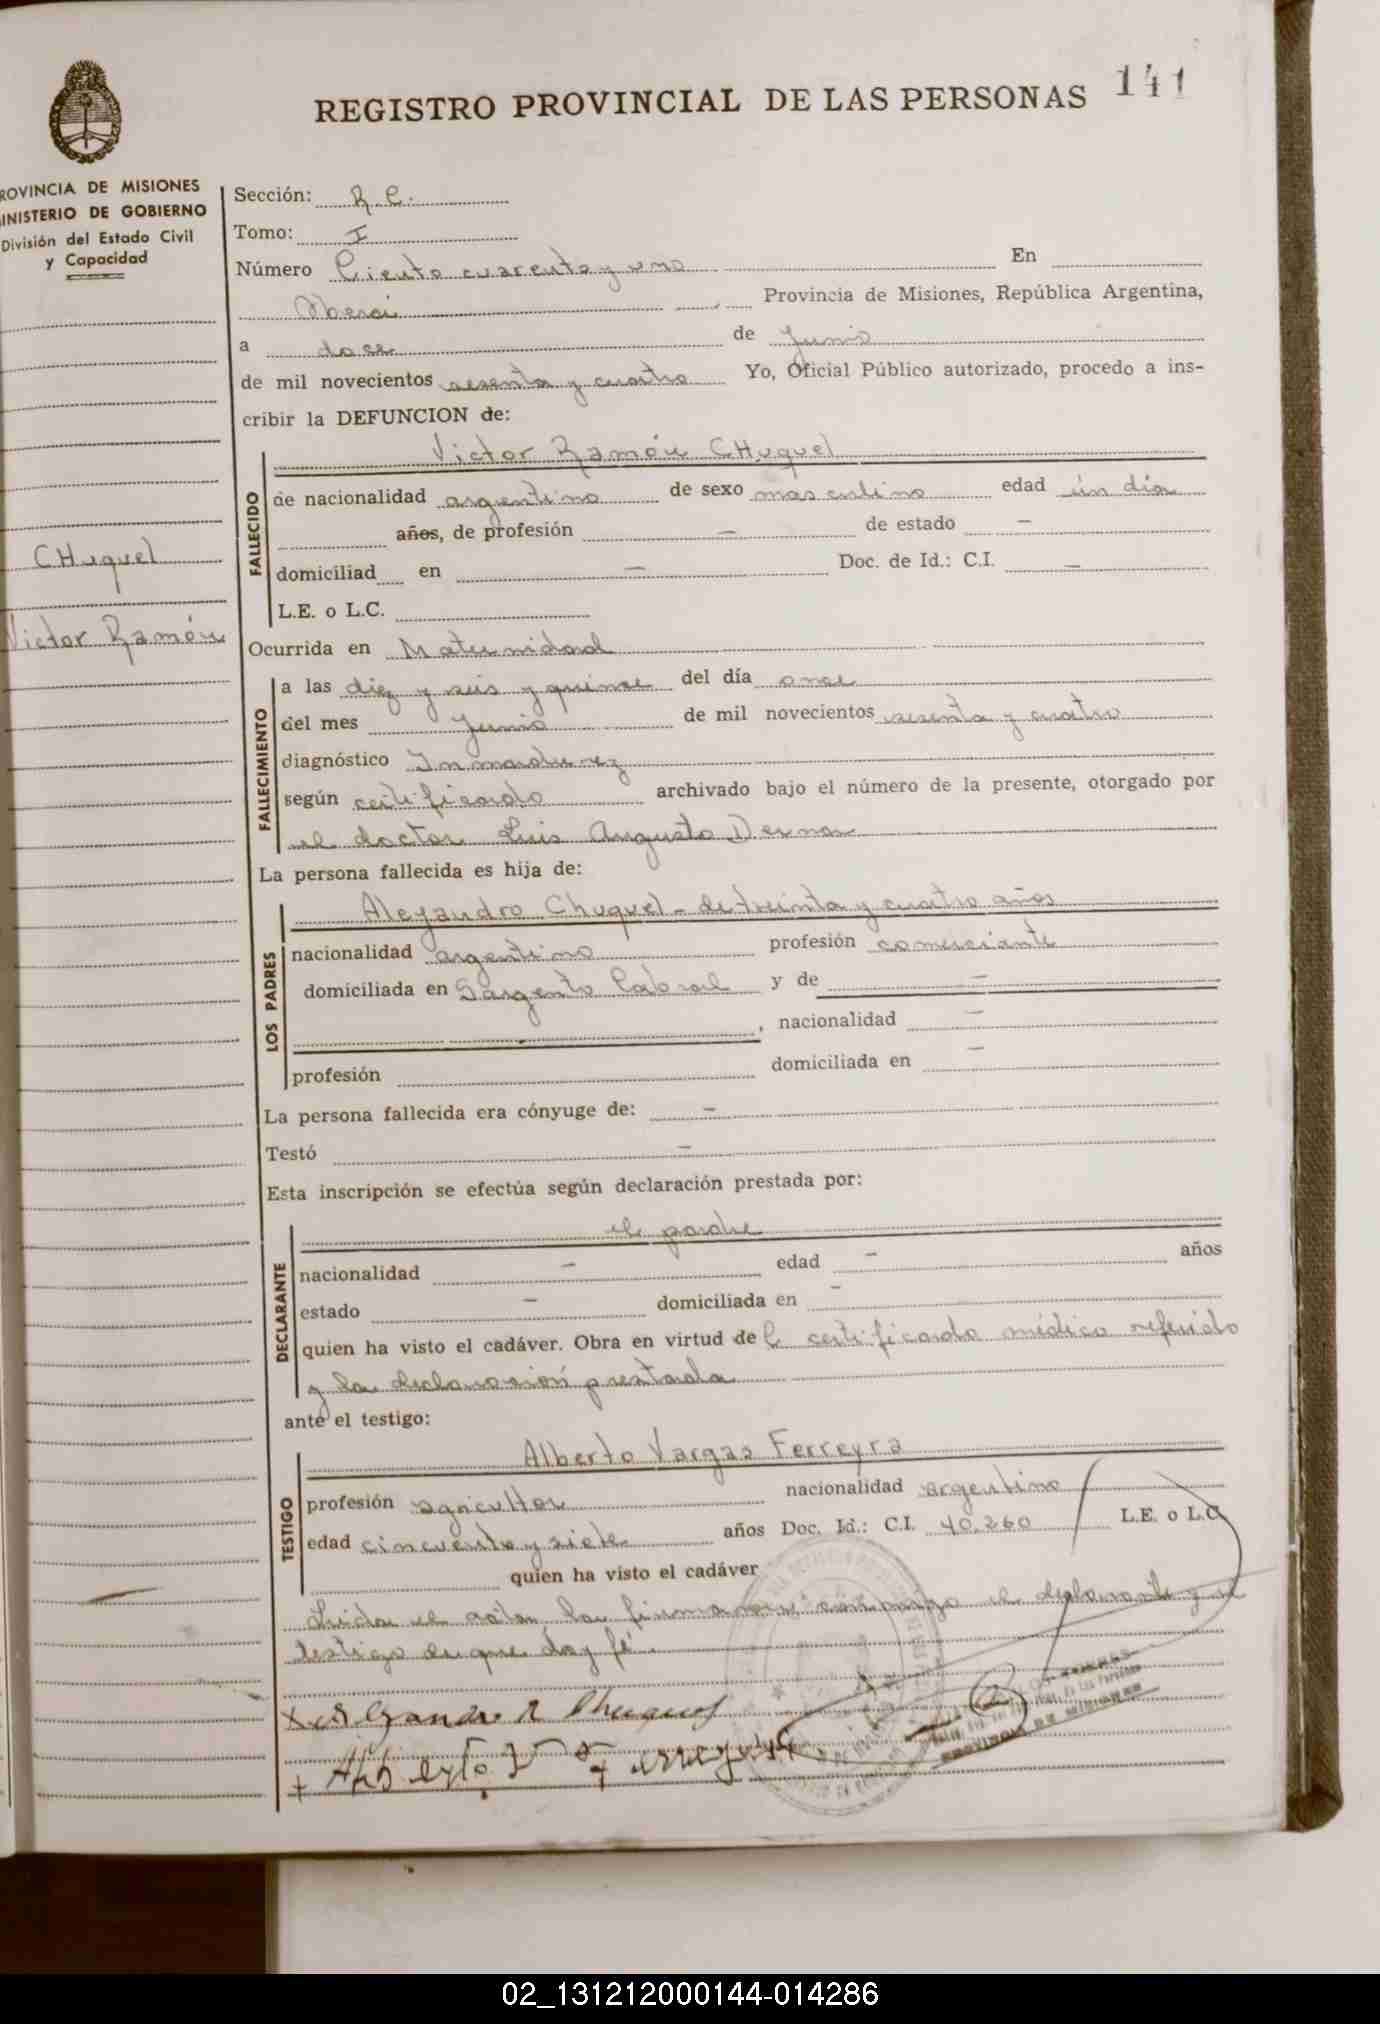 REGISTRO PROVINCIAL DE LAS PERSONAS 141
ROVINCIA DE MISIONES
INISTERIO DE GOBIERNO
División del Estado Civil
y Capacidad
CHuquel
Victor Ramón
Sección: R C.
Tomo: I
Número Ciento cuarenta y uno En
Oberá Provincia de Misiones, República Argentina,
a doce de Junio
de mil novecientos sesenta y cuatro Yo, Oficial Público autorizado, procedo a ins-
cribir la DEFUNCION de:
FALLECIDO
Victor Ramón CHuquel
de nacionalidad argentino de sexo masculino edad ún día
años, de profesión — de estado —
domiciliad en — Doc. de Id.: C.I. —
L.E. o L.C.
Ocurrida en Maternidad
FALLECIMIENTO
a las diez y seis y quince del día once
del mes Junio de mil novecientos sesenta y cuatro
diagnóstico Inmadurez
según certificado archivado bajo el número de la presente, otorgado por
el doctor Luis Augusto Derna
La persona fallecida es hija de:
LOS PADRES
Alejandro Chuquel - de treinta y cuatro años
nacionalidad argentino profesión comerciante
domiciliada en Sargento Cabral y de —
, nacionalidad —
profesión domiciliada en —
La persona fallecida era cónyuge de: —
Testó —
Esta inscripción se efectúa según declaración prestada por:
DECLARANTE
el padre
nacionalidad — edad — años
estado — domiciliada en —
quien ha visto el cadáver. Obra en virtud del certificado médico referido
y la declaración prestada
ante el testigo:
TESTIGO
Alberto Vargas Ferreyra
profesión agricultor nacionalidad argentino
edad cincuenta y siete años Doc. Id.: C.I. 40.260 L.E. o L.C
quien ha visto el cadáver
Leida el acta la firman conmigo el declarante y el
testigo de que doy fé.
Alejandro R Chuquel
Alberto V Ferreyra
PROVINCIA DE MISIONES
02_131212000144-014286